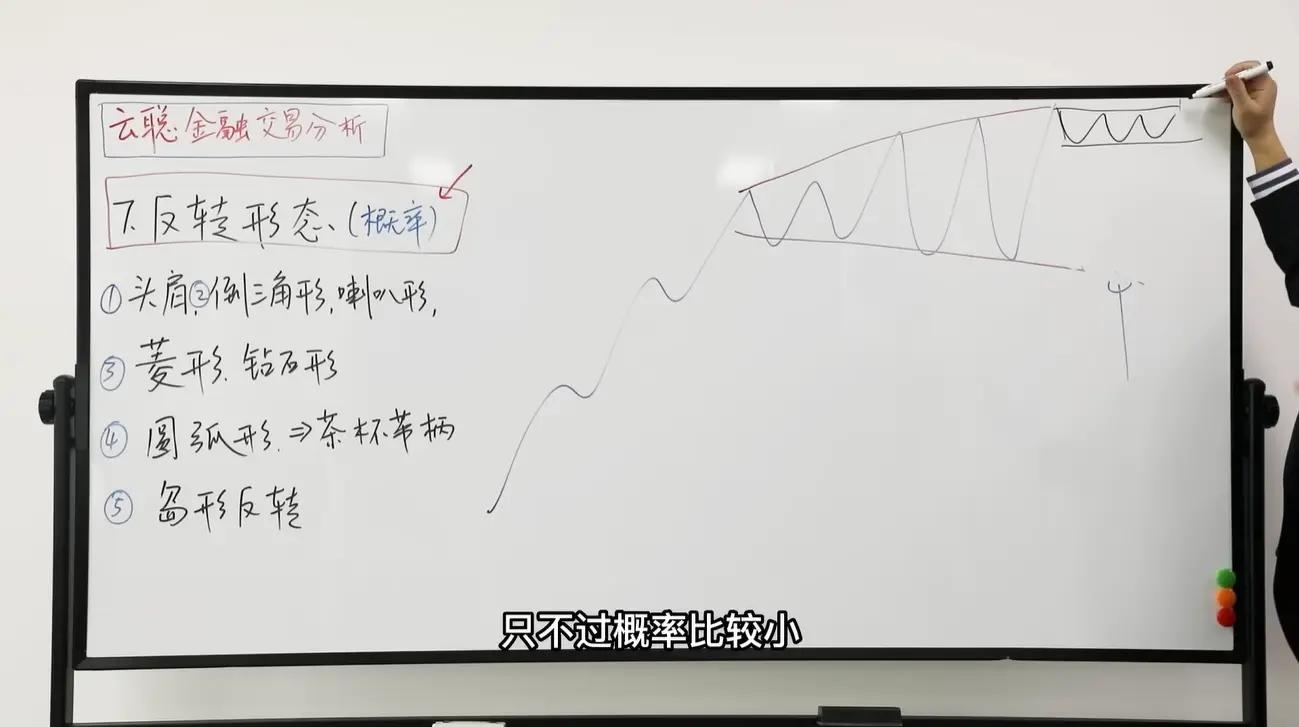 云聪金融交易分析
7.反转形态、(概率)
①头肩,②倒三角形,喇叭形,
③ 菱形.钻石形
④ 圆弧形.⇒茶杯带柄
⑤ 岛形反转
只不过概率比较小